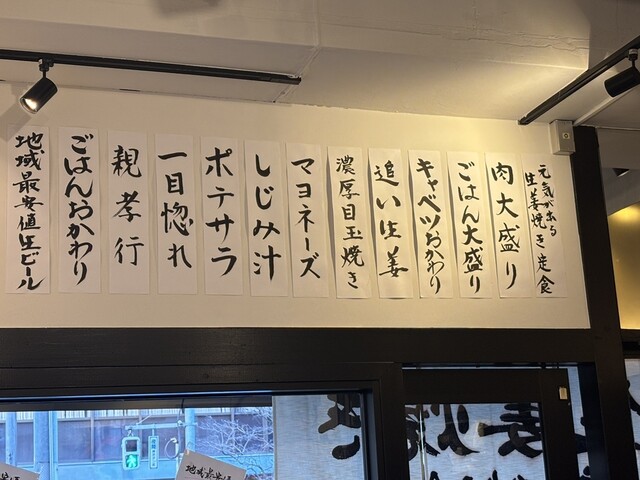 元気が出る
生姜焼き定食
肉大盛り
ごはん大盛り
キャベツおかわり
追い生姜
濃厚目玉焼き
マヨネーズ
しじみ汁
ポテサラ
一目惚れ
親孝行
ごはんおかわり
地域最安値生ビール